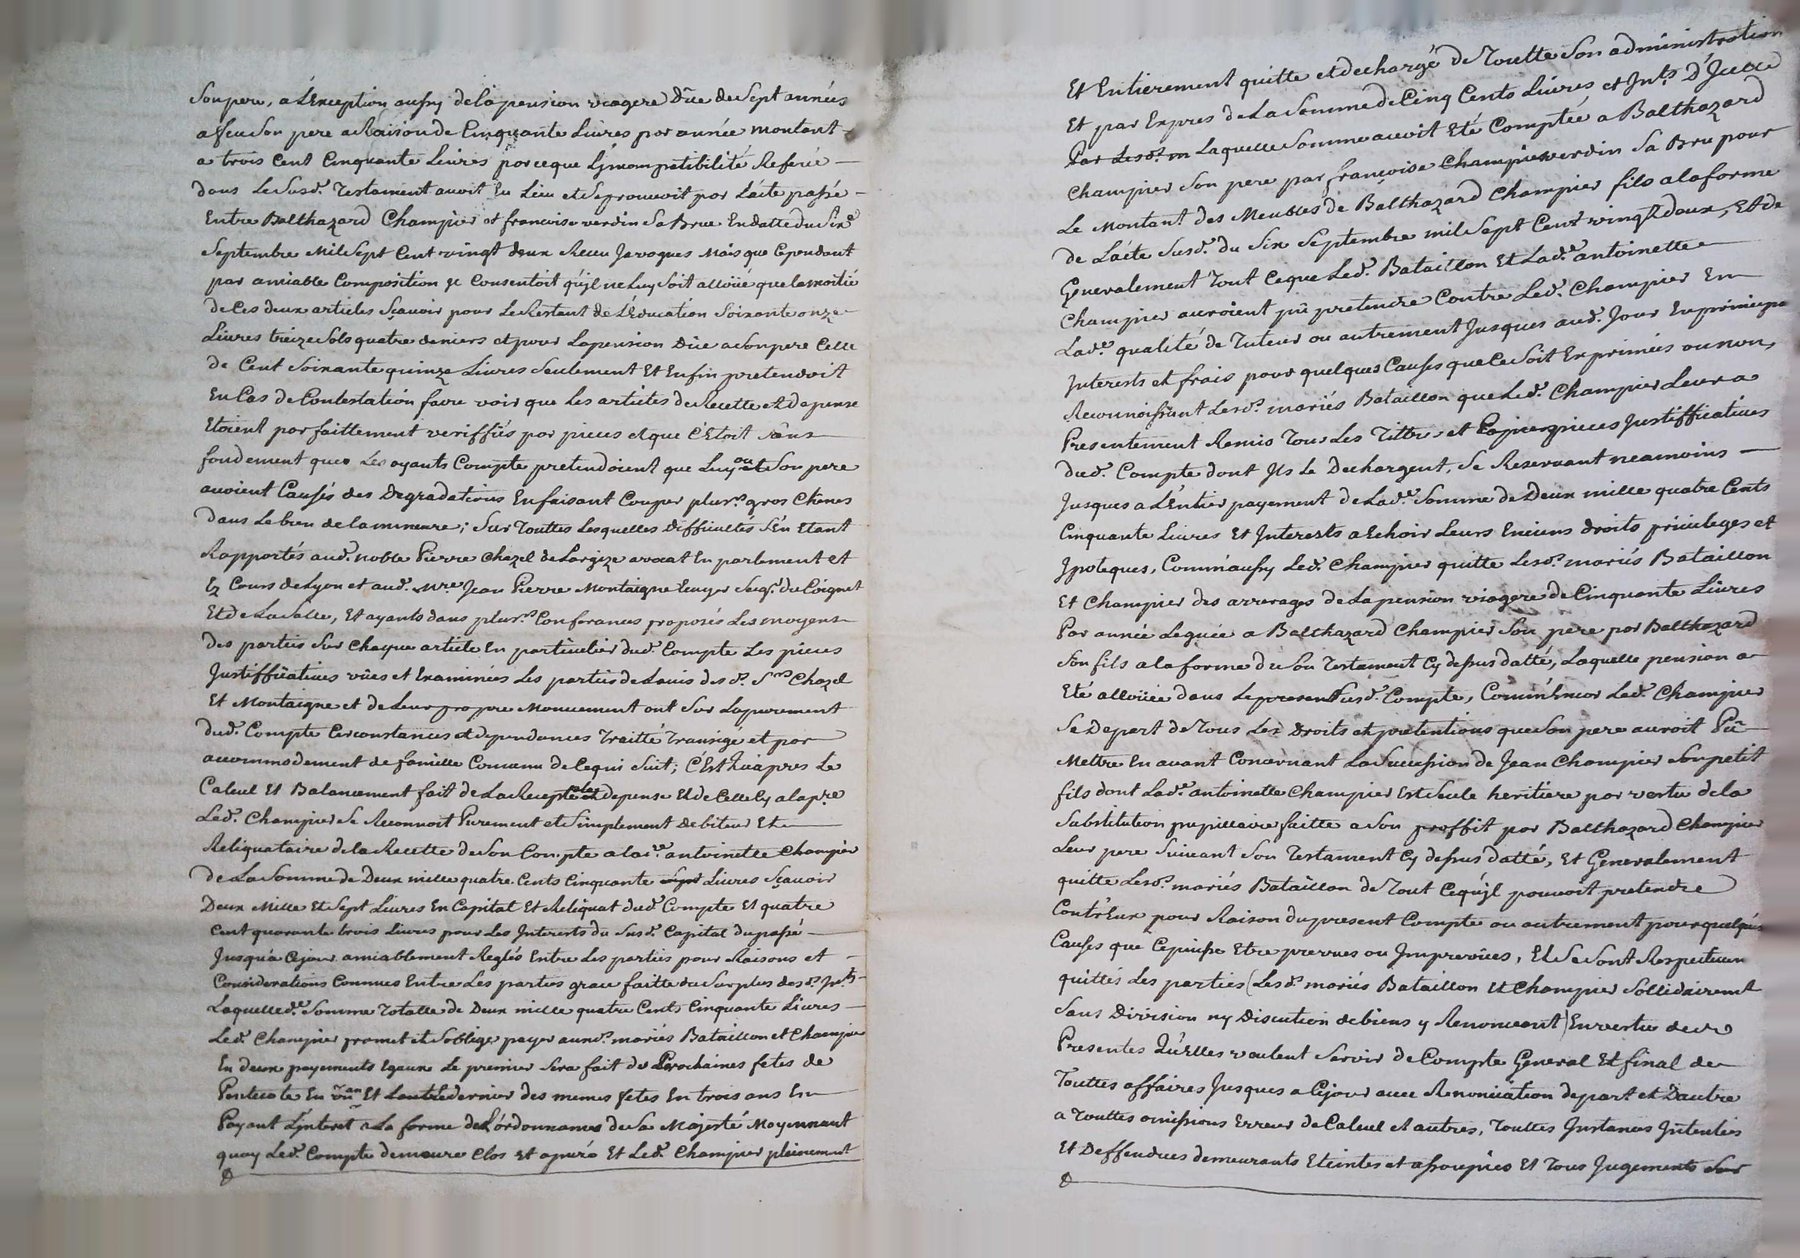 Son pere, a l'Exception aussy de la pension viagere düe de Sept années
a feu Son pere a Raison de Cinquante Livres par année montant
a trois Cent Cinquante Livres parceque L'jncompatibilité Referée
dans Le Susd. Testament avoit Eu Lieu et Se prouvoit par L'acte passé
Entre Balthazard Champier et francoise verdin Sa Brue En datte du Six
Septembre Mil Sept Cent vingt deux Receu Javogues Mais que Cependant
par amiable Composition jl Consentoit qu'jl ne Luy Soit alloüé que la moitié
de Ces deux articles Sçavoir pour Le Restant de L'Education Soixante onze
Livres treize Sols quatre deniers et pour La pension Düe a Son pere Celle
de Cent Soixante quinze Livres Seulement Et Enfin pretendoit
En Cas de Contestation faire voir que Les articles de Recette et depense
Etoient parfaittement veriffiés par pieces et que C'Etoit Sans
fondement que Les oyants Compte pretendoient que Luy ou Son pere
avoient Causés des Degradations En faisant Couper plur.s gros Chênes
Dans Le bien de la mineure; Sur Touttes Lesquelles Difficultes S'En Etant
Rapportés aud. noble Pierre Chazel de Largize avocat En parlement et
Ez Cours de Lyon et aud. Mre Jean Pierre Montaigne Ecuyer Seigr. du Poignet
Et de La Salle, Et ayants dans plur.s Conferances proposés Les moyens
des parties Sur Chaque article En particulier dud. Compte Les pieces
Justifficatives vües et Examinées Les parties de L'avis des d. Srs Chazel
Et Montaigne et de Leur propre Mouvement ont Sur L'apurement
dud. Compte Circonstances et dependances Traitté Transigé et par
accommodement de famille Convenu de Ce qui Suit; C'Est qu'apres Le
Calcul Et Balancement fait de La Recepte et depense Et de Celle Cy a la pre
Led. Champier Se Reconnoit Purement et Simplement debiteur Et
Reliquataire de la Recette de Son Compte a lad.e antoinette Champier
De La Somme de Deux mille quatre Cents Cinquante Livres Sçavoir
Deux Mille Et Sept Livres En Capital Et Reliquat dud. Compte Et quatre
Cent quarente trois Livres pour Les Interests du Susd. Capital du passé
Jusqu'a Cejour amiablement Reglés Entre Les parties pour Raisons et
Considerations Connues Entre Les parties grace faitte du Surplus des d. Jnts
Laquelled.e Somme Totalle de Deux mille quatre Cents Cinquante Livres
Led. Champier promet et S'oblige payer auxd. mariés Bataillon et Champier
En deux payements Egaux Le premier Sera fait de Prochaines fetes de
Pentecote En un an Et L'autre dernier des memes fetes En trois ans En
Payant L'jnteret a La forme de L'ordonnance de Sa Majesté Moyennant
quoy Led. Compte demeure Clos Et apuré Et Led. Champier pleinement
Et Entierement quitte et dechargé de Toutte Son administration
Et par Expres de La Somme de Cinq Cents Livres et Jnts D'Icelle
Laquelle Somme avoit Eté Comptée a Balthazard
Champier Son pere par françoise verdin Sa Bru pour
Le Montant des Meubles de Balthazard Champier fils a la forme
de L'acte Susd. du Six Septembre mil Sept Cent vingt deux, Et de
Generalement Tout Ce que Led. Bataillon Et Lad.e antoinette
Champier auroient pû pretendre Contre Led. Champier En
Lad.e qualité de Tuteur ou autrement Jusques aud. Jour En principal
Interests et frais pour quelques Causes que Ce Soit Exprimées ou non,
Reconnoissant Lesd. mariés Bataillon que Led. Champier Leur a
Presentement Remis Tous Les Tittres et pieces Justifficatives
dud. Compte dont Jls Le Dechargent, Se Reservant neamoins
Jusques a L'Entier payement de Lad.e Somme de Deux mille quatre Cents
Cinquante Livres Et Interests a Echoir Leurs Enciens droits privileges et
Jpoteques, Comm'aussy Led. Champier quitte Lesd. mariés Bataillon
Et Champier des arrerages de La pension viagere de Cinquante Livres
Par année Leguée a Balthazard Champier Son pere par Balthazard
Son fils a la forme de Son Testament Cy dessus datté, Laquelle pension a
Eté alloüée dans Le present Susd. Compte, Comm'Encor Led. Champier
Se Depart de Tous Les Droits et pretentions que Son pere auroit Pu
Mettre En avant Concernant La Succession de Jean Champier Son petit
fils dont Lad.e antoinette Champier Est Seule heritiere par vertu de la
Substitution pupillaire faitte a Son proffit par Balthazard Champier
Leur pere Suivant Son Testament Cy dessus datté, Et Generalement
quitte Lesd. mariés Bataillon de Tout Ce qu'jl pouvoit pretendre
Contr'Eux pour Raison du present Compte ou autrement pour quelques
Causes que Ce puisse Etre prevues ou Imprevües, Et Se Sont Respectivem
quittés Les parties (Lesd. mariés Bataillon Et Champier Sollidairemt
Sans Division ny Discution de biens y Renonceant) En vertu de
Presentes Qu'Elles veulent Servir de Compte General Et final de
Touttes affaires Jusques a Cejour avec Renonciation de part et D'autre
a Touttes omissions Erreur de Calcul et autres, Touttes Instances Intentées
Et Deffendues demeurants Eteintes et assoupies Et Tous Jugements Sur